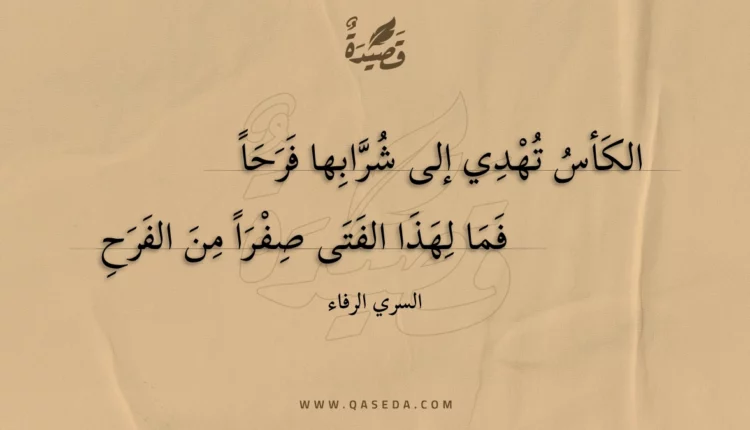 قَصِيدَةٌ
الكَأسُ تُهْدِي إلى شُرَّابِها فَرَحَاً
فَمَا لِهَذَا الفَتَى صِفْرَاً مِنَ الفَرَحِ
السري الرفاء
WWW.QASEDA.COM